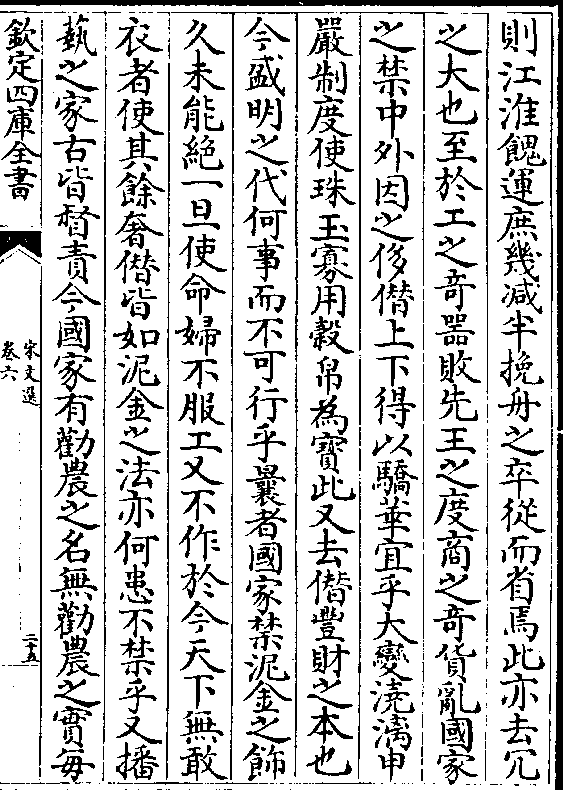 則江淮餽運庶幾減半挽舟之卒從而省焉此亦去冗
之大也至於工之竒器敗先王之度商之竒貨亂國家
之禁中外因之侈僣上下得以驕華宜乎大變澆漓申
嚴制度使珠玉寡用穀帛為寳此又去僣豐財之本也
今盛明之代何事而不可行乎曩者國家禁泥金之飾
久未能絶一旦使命婦不服工又不作於今天下無敢
衣者使其餘奢僣皆如泥金之法亦何患不禁乎又播
藝之家古皆督責今國家有勸農之名無勸農之實每
欽定四庫全書
宋文選
卷六
二十五